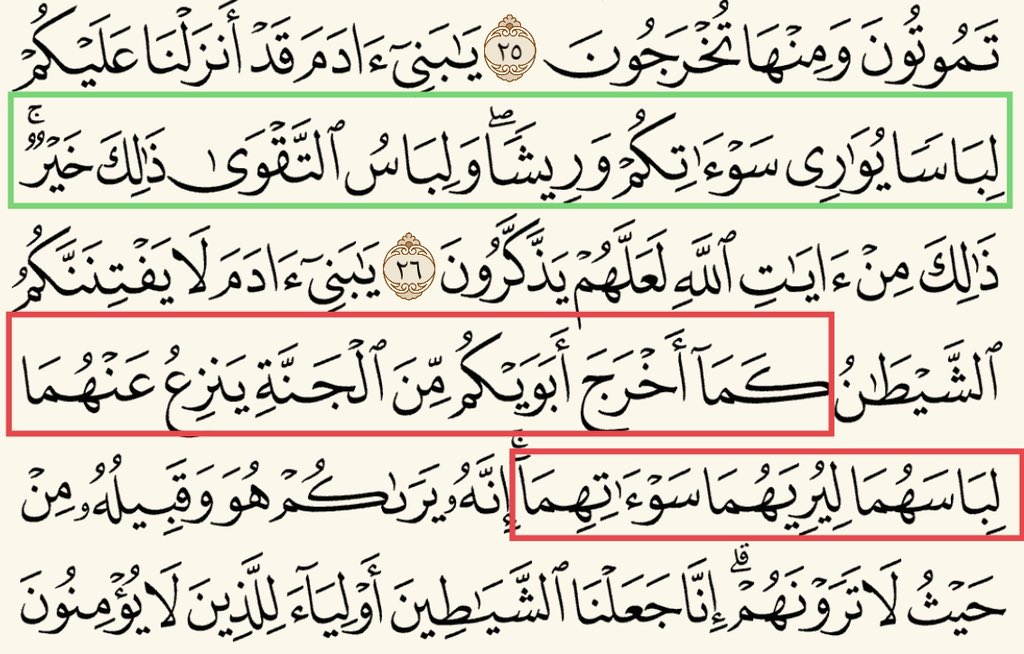 تَمُوتُونَ وَمِنْهَا تُخْرَجُونَ ٢٥ يَٰبَنِىٓ ءَادَمَ قَدْ أَنزَلْنَا عَلَيْكُمْ
لِبَاسًا يُوَٰرِى سَوْءَٰتِكُمْ وَرِيشًا ۖ وَلِبَاسُ ٱلتَّقْوَىٰ ذَٰلِكَ خَيْرٌ ۚ
ذَٰلِكَ مِنْ ءَايَٰتِ ٱللَّهِ لَعَلَّهُمْ يَذَّكَّرُونَ ٢٦ يَٰبَنِىٓ ءَادَمَ لَا يَفْتِنَنَّكُمُ
ٱلشَّيْطَٰنُ كَمَآ أَخْرَجَ أَبَوَيْكُم مِّنَ ٱلْجَنَّةِ يَنزِعُ عَنْهُمَا
لِبَاسَهُمَا لِيُرِيَهُمَا سَوْءَٰتِهِمَآ ۗ إِنَّهُۥ يَرَىٰكُمْ هُوَ وَقَبِيلُهُۥ مِنْ
حَيْثُ لَا تَرَوْنَهُمْ ۗ إِنَّا جَعَلْنَا ٱلشَّيَٰطِينَ أَوْلِيَآءَ لِلَّذِينَ لَا يُؤْمِنُونَ